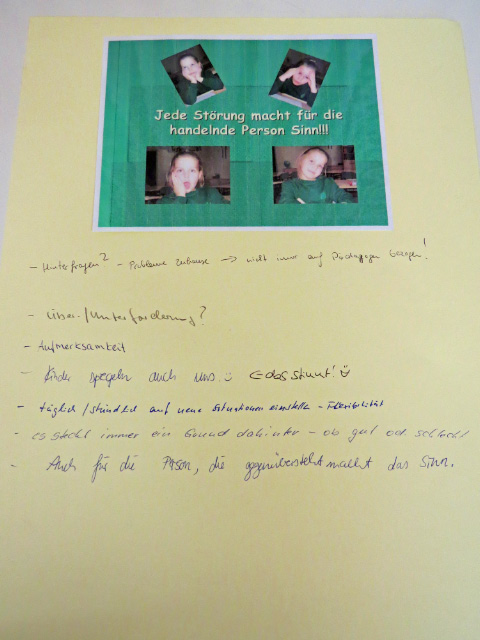 Jede Störung macht für die
handelnde Person Sinn!!!
- Hinterfragen? - Probleme Zuhause -> nicht immer auf Pädagogen bezogen!
- Über-/Unterforderung?
- Aufmerksamkeit
- Kinder spiegeln auch uns. :) <- das stimmt! :)
- täglich/stündlich auf neue Situationen einstellen - Flexibilität
- es steckt immer ein Grund dahinter - ob gut od. schlecht
- Auch für die Person, die gegenübersteht macht das Sinn.